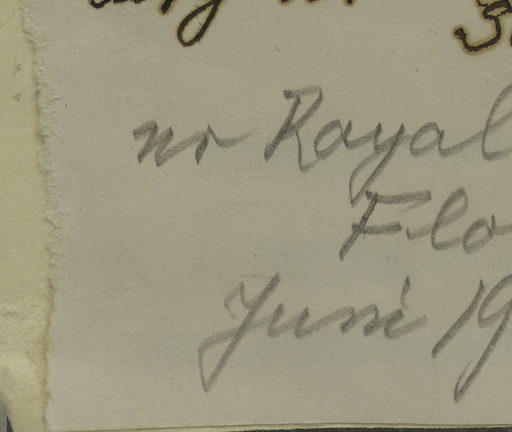 nr Royal
Flo
Juni 19